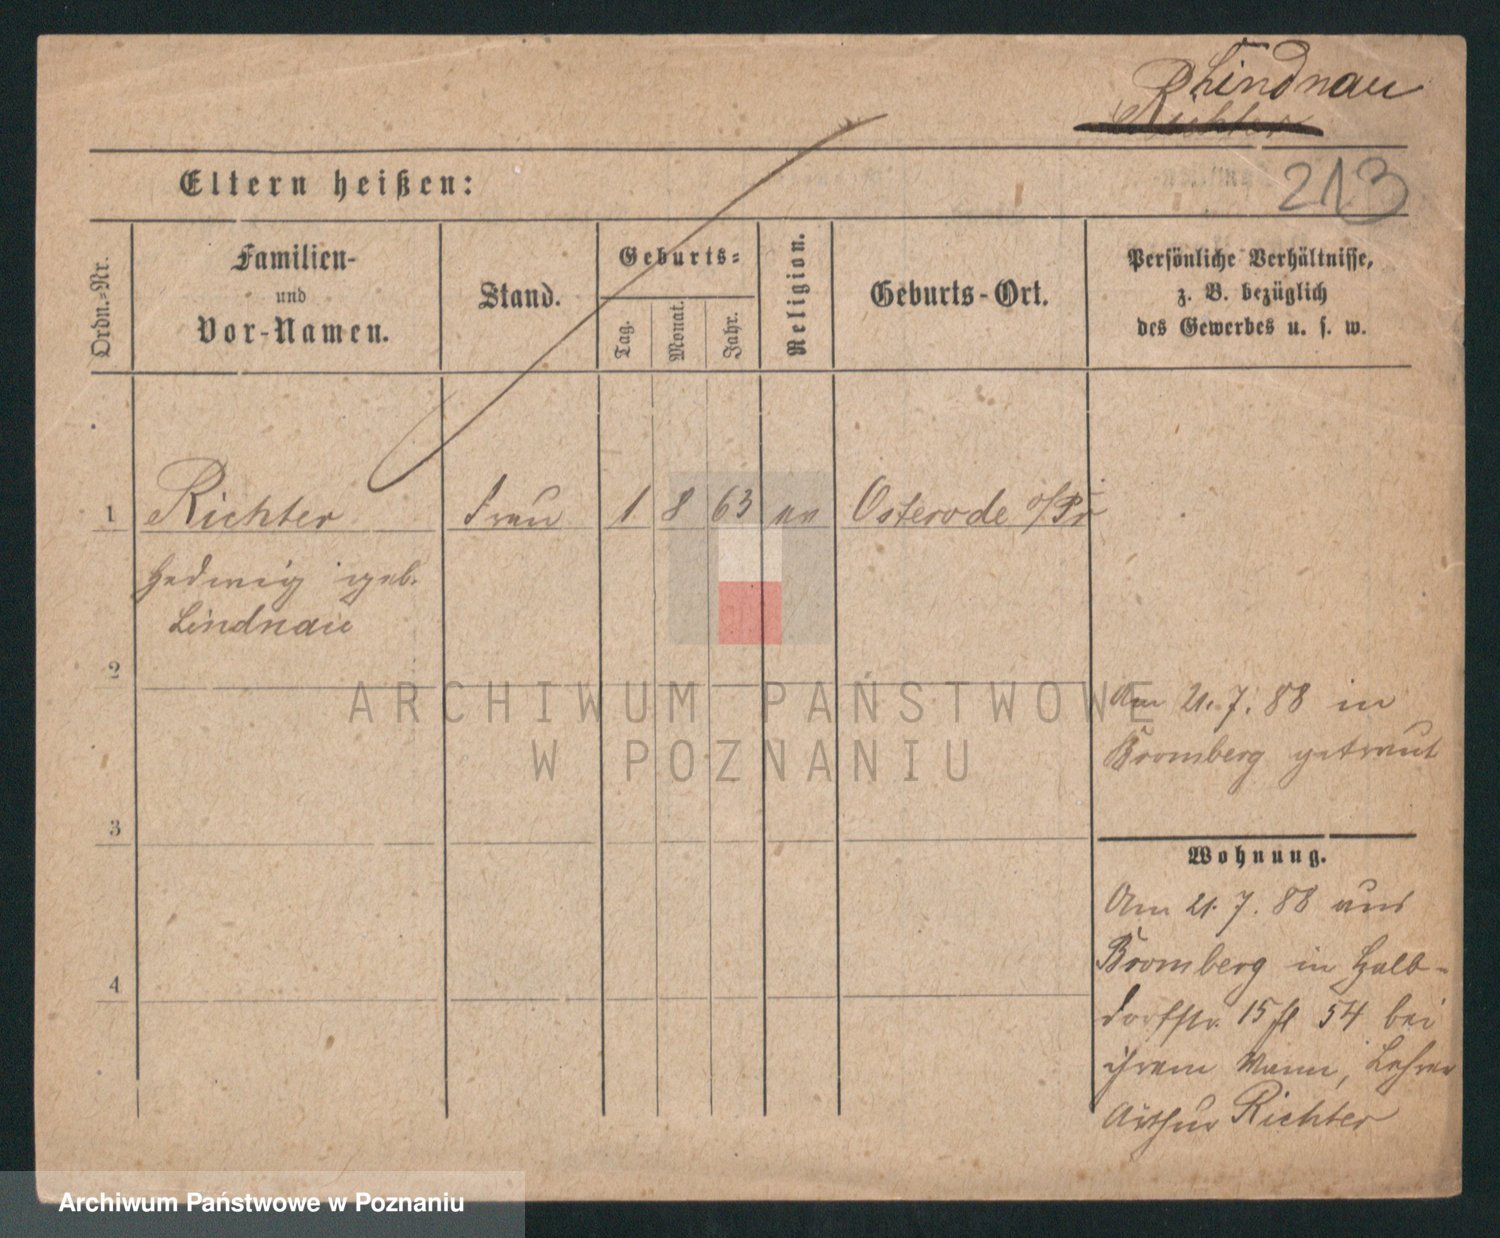 Lindnau
Richter
213
Eltern heißen:
Ordn.-Nr.
Familien-
und
Vor-Namen.
Stand.
Geburts-
Tag.
Monat.
Jahr.
Religion.
Geburts-Ort.
Persönliche Verhältnisse,
z. B. bezüglich
des Gewerbes u. s. w.
1 Richter Frau 1 8 63 ev Osterode o/Pr
Hedwig geb.
Lindnau
2
Am 21. 7. 88 in
Bromberg getraut
3
Wohnung.
Am 21. 7. 88 aus
Bromberg in Halb-
dorfstr. 15 54 bei
ihrem Mann, Lehrer
Arthur Richter
4
ARCHIWUM PAŃSTWOWE
W POZNANIU
Archiwum Państwowe w Poznaniu